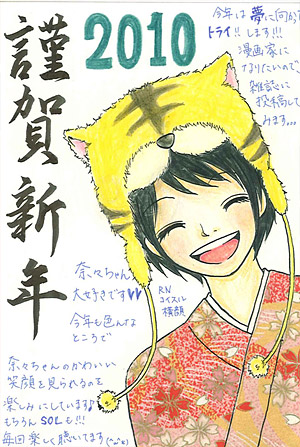 謹賀新年
2010
今年は夢に向かって
トライ!!します!!!
漫画家に
なりたいので
雑誌に
投稿して
みます...
奈々ちゃん
大好きです♥♥
今年も色んな
ところで
奈々ちゃんのかわいい
笑顔を見られるのを
楽しみにしています♪
もちろんSOLも!!!
毎回楽しく聴いてます(^-^)
RN
コイスル
横顔